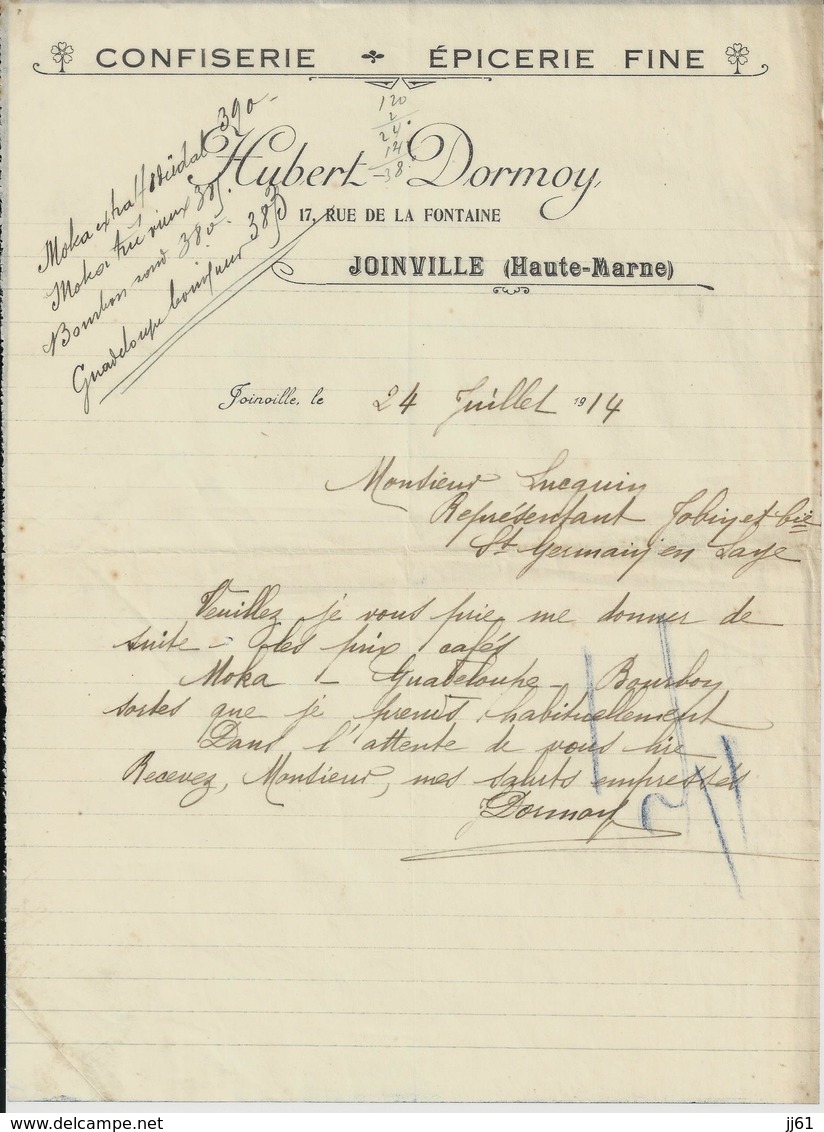 CONFISERIE ÉPICERIE FINE
120
2
24.
14
-38.
Hubert Dormoy,
17, RUE DE LA FONTAINE
JOINVILLE (Haute-Marne)
Moka extra 390-
Moka trié vieux 385.
Bourbon rond 380.
Guadeloupe bonifieur 385
Joinville, le 24 Juillet 1914
Monsieur Lucquin
Représentant Jobin et Cie
St Germain en Laye
Veuillez je vous prie me donner de
suite - les prix cafés
Moka - Guadeloupe - Bourbon
sortes que je prends habituellement
Dans l'attente de vous lire
Recevez, Monsieur, mes saluts empressés
Dormoy
www.delcampe.net
jj61